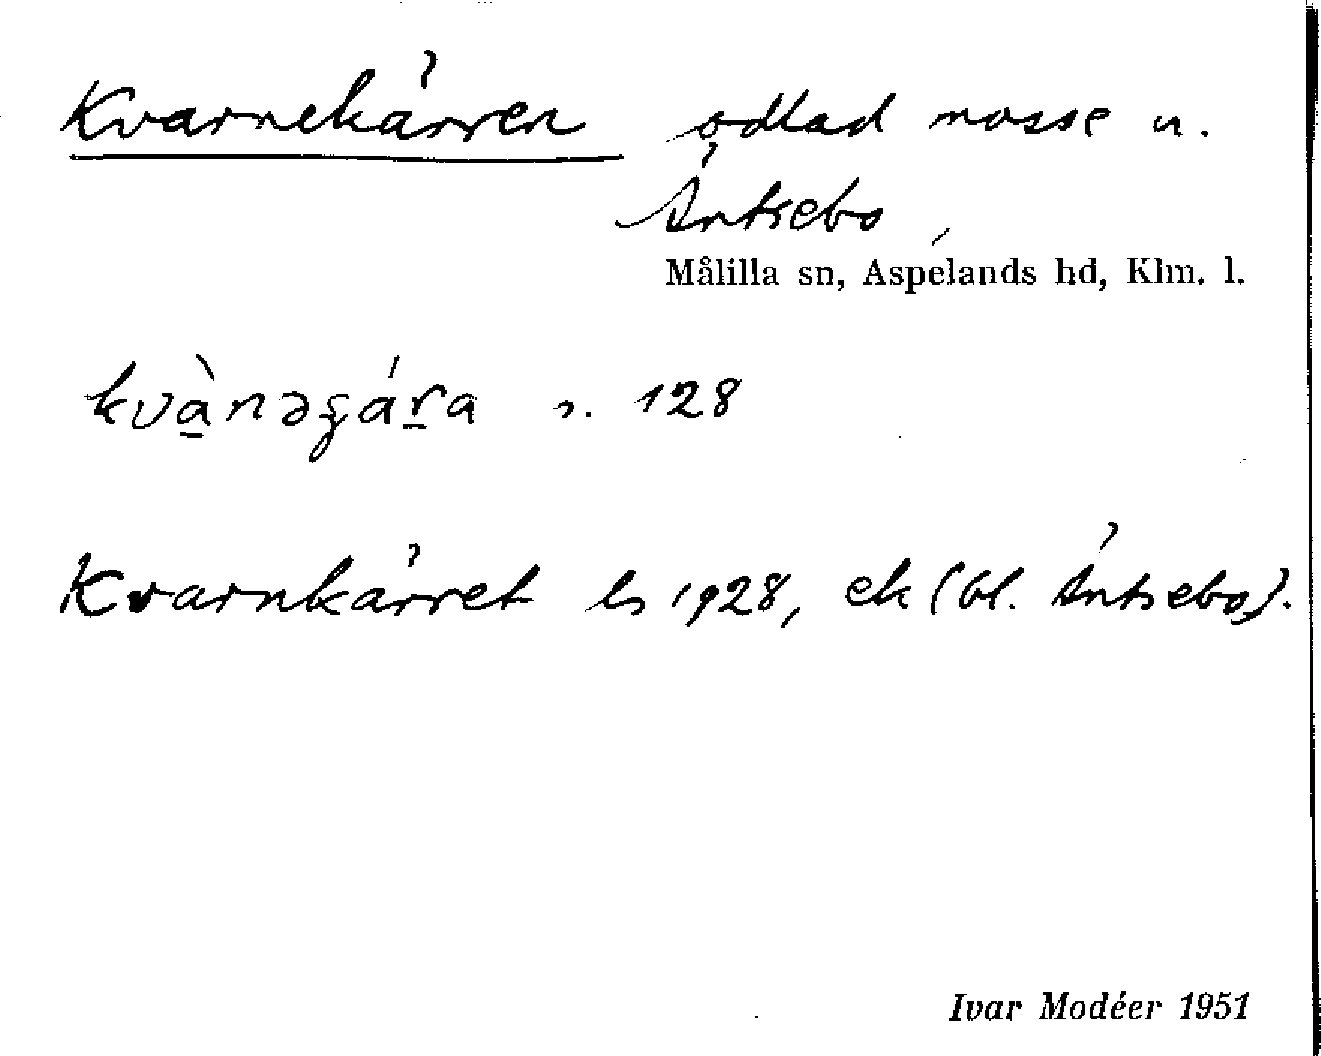 Kvarnekärren odlad mosse u.
Äntsebo,
Målilla sn, Aspelands hd, Klm. l.
kvànəʂára s. 128
Kvarnkärret ls 1928, ek (bl. Äntsebo).
Ivar Modéer 1951